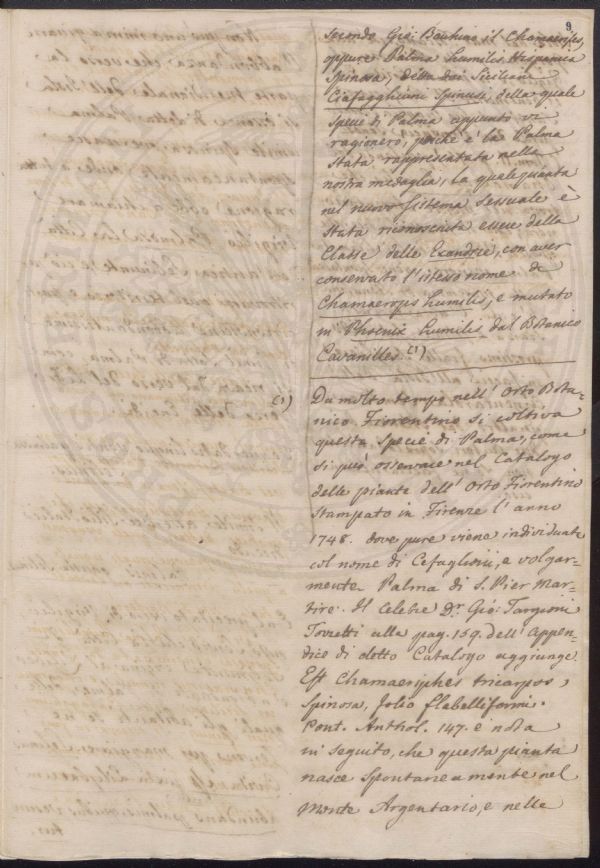 9
secondo Gio: Bauhino il Chamaeriphes,
oppure Palma humilis Hispanica
Spinosa, detta dai Siciliani
Ciafagghiuni Spinusi, della quale
Specie di Palma appunto vi
ragionero, poichè è la Palma
Stata rappresentata nella
nostra medaglia, la quale pianta
nel nuovo Sistema Sessuale è
Stata riconosciuta essere della
Classe delle Exandrie, con aver
conservato l'istesso nome di
Chamaerops humilis, e mutato
in Phoenix humilis dal Botanico
Cavanilles. (1)
(1) Da molto tempo nell'Orto Bota=
nico Fiorentino si coltiva
questa Specie di Palma, come
si può osservare nel Catalogo
delle piante dell'Orto Fiorentino
Stampato in Firenze l'anno
1748. dove pure viene individuata
col nome di Cefaglioni, e volgar=
mente Palma di S. Pier Mar=
tire. Il Celebre Dr. Gio: Targioni
Tozzetti alla pag. 159. dell'Appen=
dice di detto Catalogo aggiunge
Est Chamaeriphes tricarpos,
Spinosa, folio flabelliformi.
Pont. Anthol. 147. e nota
in seguito, che questa pianta
nasce Spontaneamente nel
Monte Argentario, e nelle